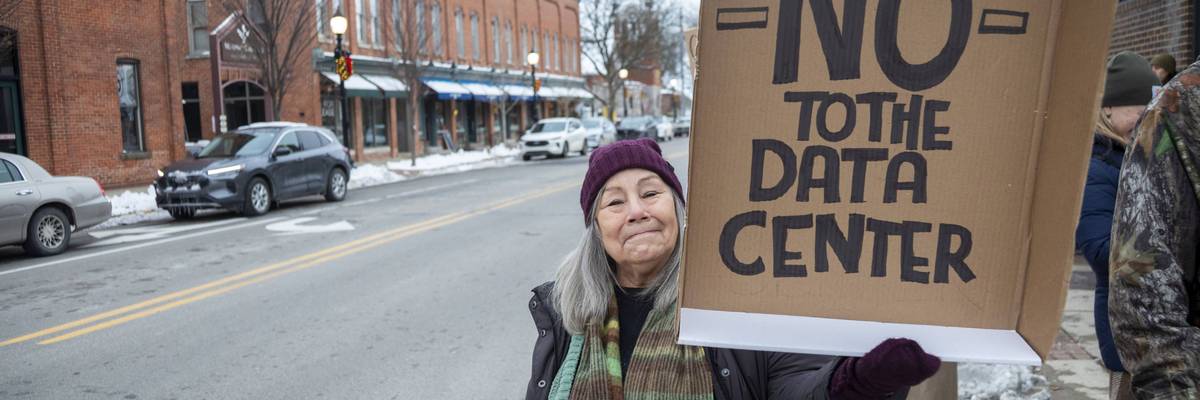 -NO-
TO THE
DATA
CENTER